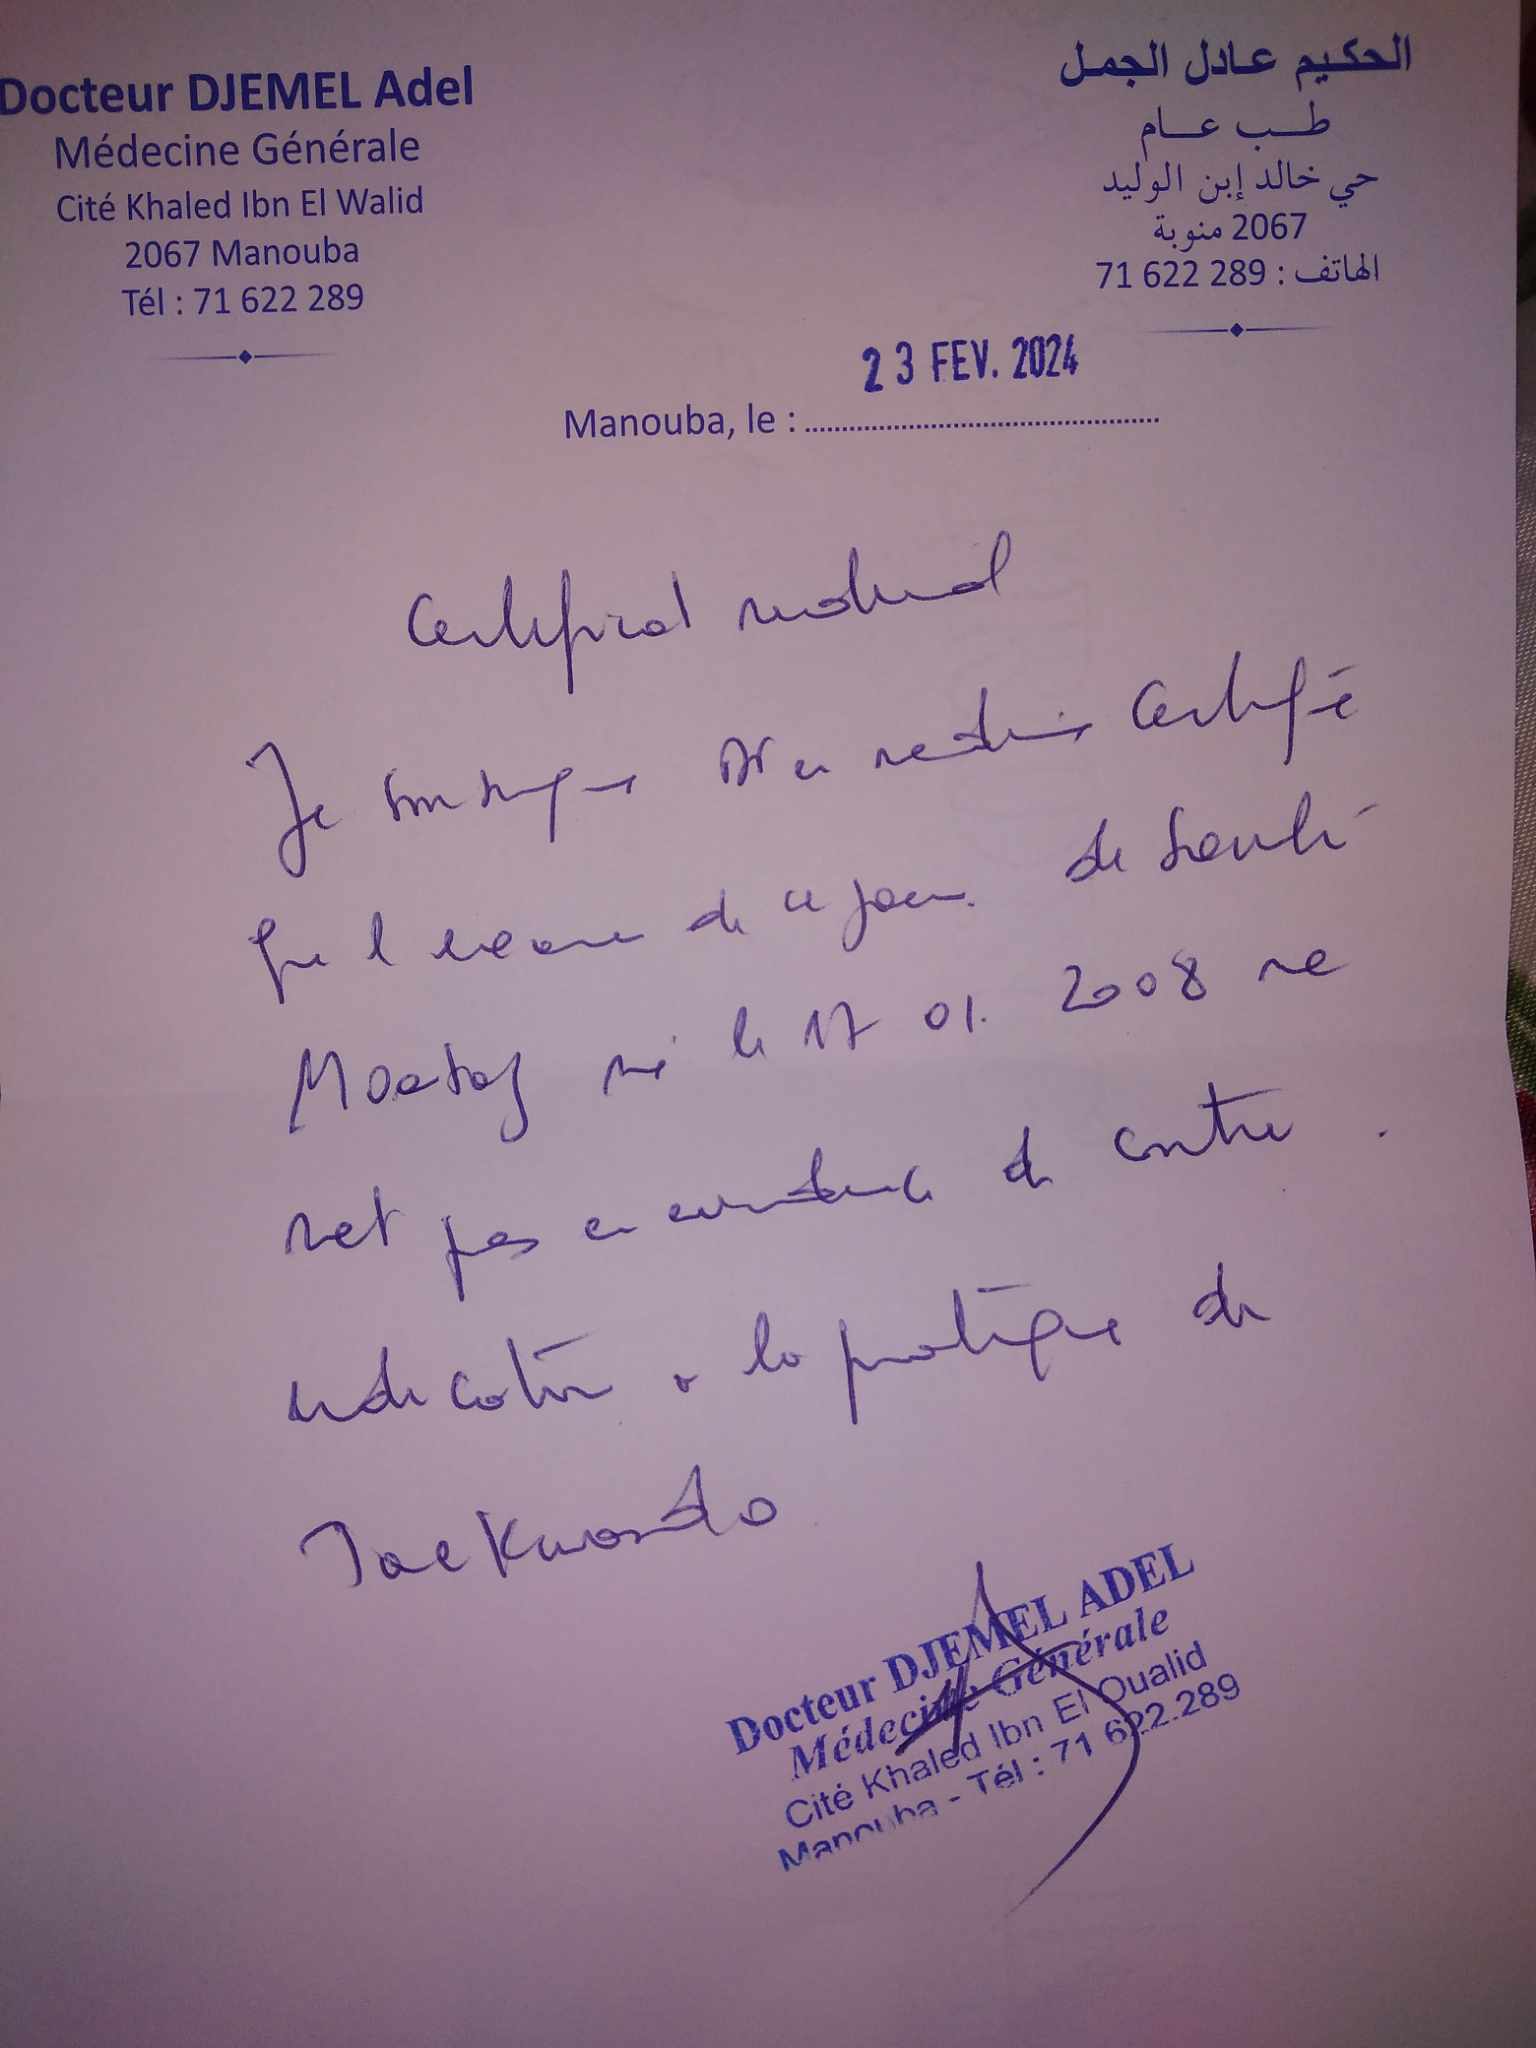 Docteur DJEMEL Adel
Médecine Générale
Cité Khaled Ibn El Walid
2067 Manouba
Tél : 71 622 289
الحكيم عادل الجمل
طب عام
حي خالد إبن الوليد
2067 منوبة
الهاتف : 289 622 71
23 FEV. 2024
Manouba, le :
Certificat medical
Je soussigne Dr en medecine Certifie
que l examen de ce jour de
né le 17 01. 2008 ne
met pas en evidence de contre
indication a la pratique de
Taekwondo
Docteur DJEMEL ADEL
Médecine Générale
Cité Khaled Ibn El Oualid
Manouba - Tél : 71 622.289